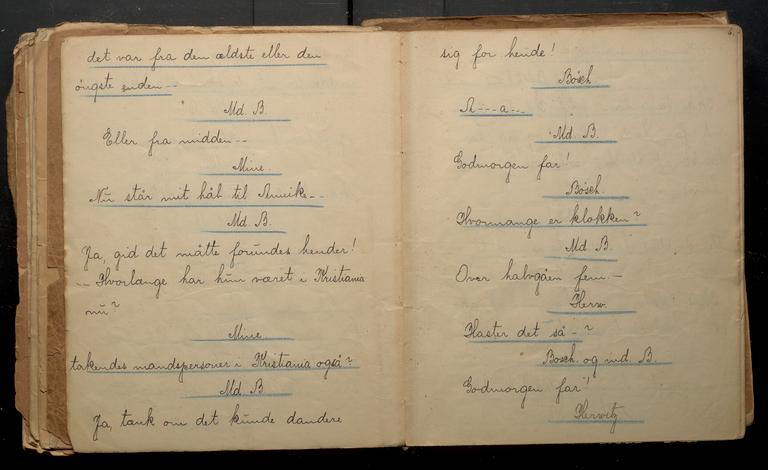 det var fra den ældste eller den
öngste enden --
Md. B.
Eller fra midden --
Mine.
Nu står mit håb til Ameika --
Md. B.
Ja, gid det måtte forundes hender!
-- Hvorlænge har hun været i Kristiania
nu?
Mine
takendes mandspersoner i Kristiania også?
Md. B
Ja, tænk om det kunde dandere
6.
sig for hende!
Bösch
A---a---
Md. B.
Godmorgen far!
Bösch.
Hvormange er klokken?
Md. B.
Over halvgåen fem. -
Herw.
Haster det så - ?
Bosch. og md. B.
Godmorgen far!
Herwitz